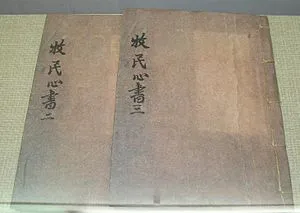 牧民心書三
牧民心書二